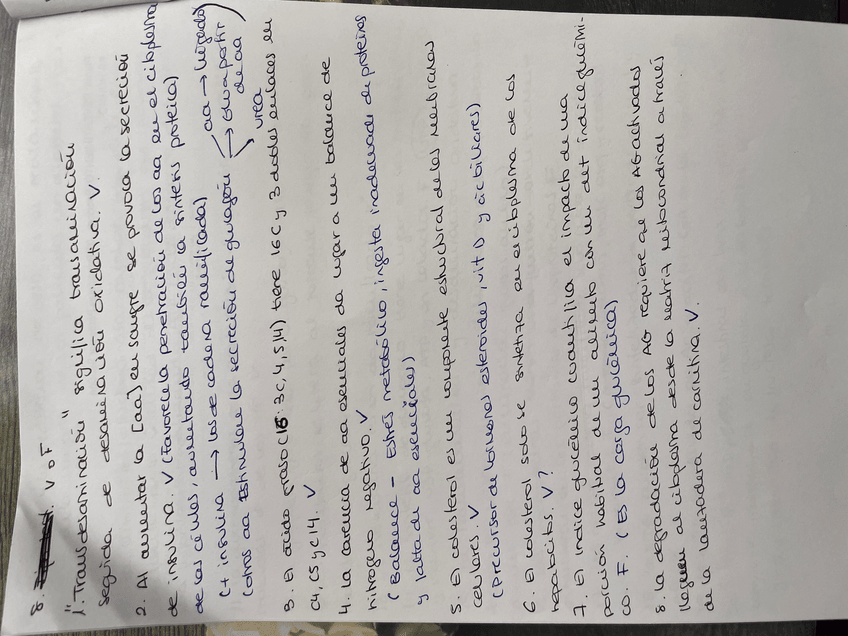 8. V o F
1. "Transdesaminación" significa transaminación
seguida de desaminación oxidativa. V.
2. Al aumentar la [aa] en sangre se provoca la secreción
de insulina. V (Favorece la penetración de los aa en el citoplasma
de las células, aumentando también la síntesis proteica)
(+ insulina → los de cadena ramificada) aa → hígado)
(otros aa Estimulan la secreción de glucagón → Glu a partir
de aa
urea
3. El ácido graso (16:3C,4,5,14) tiene 16C y 3 dobles enlaces en
C4, C5 y C14. V
4. La carencia de aa esenciales da lugar a un balance de
nitrógeno negativo. V
(Balance - Estrés metabólico, ingesta inadecuada de proteínas
y falta de aa esenciales)
5. El colesterol es un componente estructural de las membranas
celulares. V
(Precursor de hormonas esteroides, vit D y ác biliares)
6. El colesterol solo se sintetiza en el citoplasma de los
hepatocitos. V?
7. El índice glucémico cuantifica el impacto de una
porción habitual de un alimento con un det índice glucémi-
co. F. (Es la carga glucémica)
8. La degradación de los AG requiere que los AG activados
lleguen al citoplasma desde la matriz mitocondrial a través
de la lanzadera de carnitina. V.